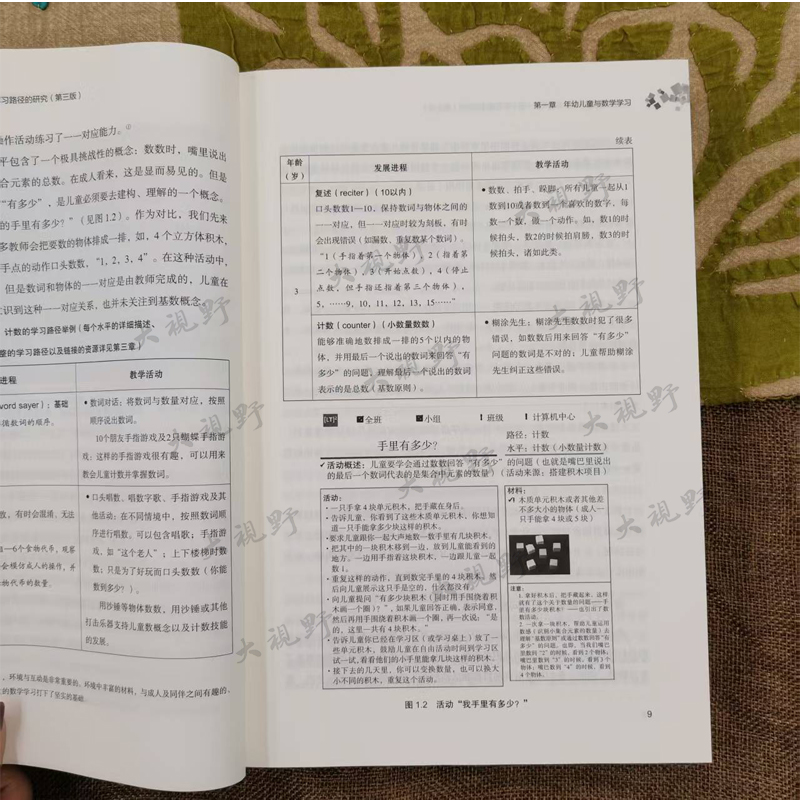 习路径的研究（第三版）
操作活动练习了一一对应能力。②
平包含了一个极具挑战性的概念：数数时，嘴里说出
合元素的总数。在成人看来，这是显而易见的。但是
“有多少”，是儿童必须要去建构、理解的一个概念。
的手里有多少？”（见图1.2）。作为对比，我们先来
多教师会把要数的物体排成一排，如，4个立方体积木，
手点的动作口头数数，“1, 2, 3, 4”。在这种活动中，
但是数词和物体的一一对应是由教师完成的，儿童在
识到这种一一对应关系，也并未关注到基数概念。
计数的学习路径举例（每个水平的详细描述、
整的学习路径以及链接的资源详见第三章）
进程
教学活动
word sayer）：基础
摸数词的顺序。
• 数词对话：将数词与数量对应，按照
顺序说出数词。
10个朋友手指游戏及2只蝴蝶手指游
戏：这样的手指游戏很有趣，可以用来
教会儿童计数并掌握数词。
数，有时会混淆、无法
—6个食物代币，观察
会模仿成人的操作，并
物代币的数量。
• 口头唱数。唱数字歌、手指游戏及其
他活动：在不同情境中，按照数词顺
序进行唱数。可以包含唱歌；手指游
戏，如“这个老人”；上下楼梯时数
数；只是为了好玩而口头数数（你能
数到多少？）。
用沙锤等物体数数，用沙锤或其他
打击乐器支持儿童数概念以及计数技能
的发展。
，环境与互动是非常重要的。环境中丰富的材料，与成人及同伴之间有趣的、
的数学学习打下了坚实的基础。
第一章 年幼儿童与数学学习
续表
年龄
（岁）
发展进程
教学活动
3
复述（reciter）（10以内）
口头数数1—10，保持数词与物体之间的
一一对应，但一一对应时较为刻板，有时
会出现错误（如漏数、重复数某个数词）。
“1（手指着第一个物体），2（指着第
二个物体），3（开始点数），4（停止
点数，但手指还指着第三个物体），
5，……9，10，11，12，13，15……”
• 数数、拍手、跺脚。所有儿童一起从1
数到10或者数到一个喜欢的数字，每
数一个数，做一个动作。如，数1的时
候抬头，数2的时候拍肩膀，数3的时
候抬头，诸如此类。
计数（counter）（小数量数数）
能够准确地数排成一排的5个以内的物
体，并用最后一个说出的数词来回答“有
多少”的问题，理解最后一个说出的数词
表示的是总数（基数原则）。
• 糊涂先生：糊涂先生数数时犯了很多
错误，如数数后用来回答“有多少”
问题的数词是不对的；儿童帮助糊涂
先生纠正这些错误。
[LT]² 全班 小组 班级 计算机中心
手里有多少？
路径：计数
水平：计数（小数量计数）
✓活动概述：儿童要学会通过数数回答“有多少”的问题（也就是嘴巴里说出
的最后一个数词代表的是集合中元素的数量）（活动来源：搭建积木项目）
活动：
• 一只手拿4块单元积木，把手藏在身后。
• 告诉儿童，你看到了这些木质单元积木，你想知
道一只手能拿多少块这样的积木。
• 要求儿童跟你一起大声地数一数手里有几块积木。
• 把其中的一块积木移到一边，放到儿童能看到的
地方，一边用手指着这块积木，一边跟儿童一起
数1。
• 重复这样的动作，直到数完手里的4块积木，然
后向儿童展示这只手是空的，什么都没有。
• 向儿童提问“有多少块积木（同时用手围绕着积
木画一个圈）？”，如果儿童回答正确，表示同意，
然后再用手围绕着积木画一个圈，再一次说：“是
的，这里一共有4块积木。”
• 告诉儿童你已经在学习区（或学习桌上）放了一
些单元积木，鼓励儿童在自由活动时间到学习区
试一试，看看他们的小手里能拿几块这样的积木。
• 接下去的几天里，你可以变换数量，也可以换大
小不同的积木，重复这个活动。
材料：
✓木质单元积木或者其他差
不多大小的物体（成人一
只手能拿4块或5块）
注意：
1. 拿好积木后，把手藏起来，这样
就有了这个关于数量的问题——手
里有多少块积木——也引出了数
数活动。
2. 一次拿一块积木，帮助儿童运用
数感（识别小集合元素的数量）去
理解“基数原则”或通过数数回答“有
多少”的问题。也即，当我们嘴巴
里数到“2”的时候，看到2个物体，
嘴巴里数到“3”的时候，看到3个
物体，嘴巴里数到“4”的时候，看到
4个物体。
图 1.2 活动“我手里有多少？”
9
大视野
大视野
大视野
大视野
大视野
大视野
大视野
大视野
大视野
大视野